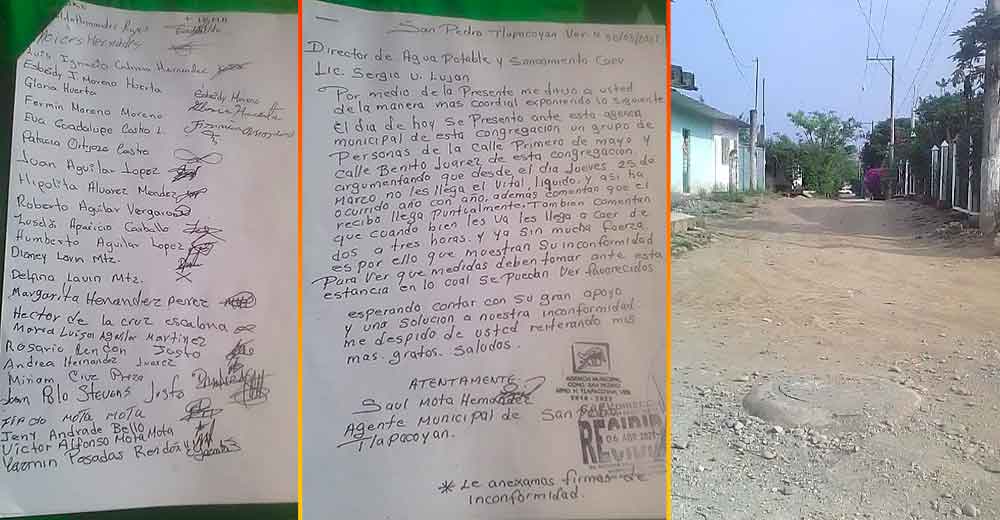 Hernandez Reyes
Luis Ignacio Cabrera Hernandez
Esbeidy J Moreno Huerta
Gloria Huerta
Esbeidy Moreno H
Fermin Moreno Moreno
Eva Guadalupe Castro L.
Patricia Ortizo Castro
Juan Aguilar Lopez
Hipolita Alvarez Mendez
Roberto Aguilar Vergara
Aparicio Carballo
Humberto Aguilar Lopez
Disney Lavin Mtz.
Delfina Lavin Mtz.
Margarita Henandez perez
Hector de la cruz escalona
Maria Luisa Aguilar Martinez
Rosario Rendon Josto
Andrea Hernandez Juarez
Miriam Cruz
Juan Pablo Stevens Josto
MOTA MOTA
Jeny Andrade Bello
Victor Alfonso Mota Mota
Yazmin Posadas Rendon
San Pedro Tlapacoyan Ver. a 30/03/2021
Director de Agua Potable y Saneamiento Caev
Lic. Sergio U. Lujan
Por medio de la Presente me dirijo a usted
de la manera mas coordial exponiendo lo siguiente
El dia de hoy se Presento ante esta agencia
municipal de esta congregación un grupo de
Personas de la Calle Primero de mayo y
Calle Benito Juarez de esta congregación,
argumentando que desde el dia Jueves 25 de
Marzo no les llega el Vital, liquido y asi ha
ocurrido año con año, además comentan que el
recibo llega puntualmente. Tambien comentan
que cuando bien les va les llega a Caer de
dos a tres horas. y ya sin mucha fuerza
es por ello que muestran Su inconformidad
Para Ver que medidas deben tomar ante esta
estancia en lo cual se puedan Ver favorecidos
esperando contar con su gran apoyo
y una solucion a nuestra inconformidad
me despido de usted reiterando mis
mas. gratos. Saludos.
ATENTAMENTE
Saul Mota Hernandez
Agente Municipal de San Pedro
Tlapacoyan.
AGENCIA MUNICIPAL
CONG. SAN PEDRO
MPIO. TLAPACOYAN, VER.
2018 - 2022
RECIBIDO
06 ABR 2021
* Le anexamos firmas de
inconformidad.